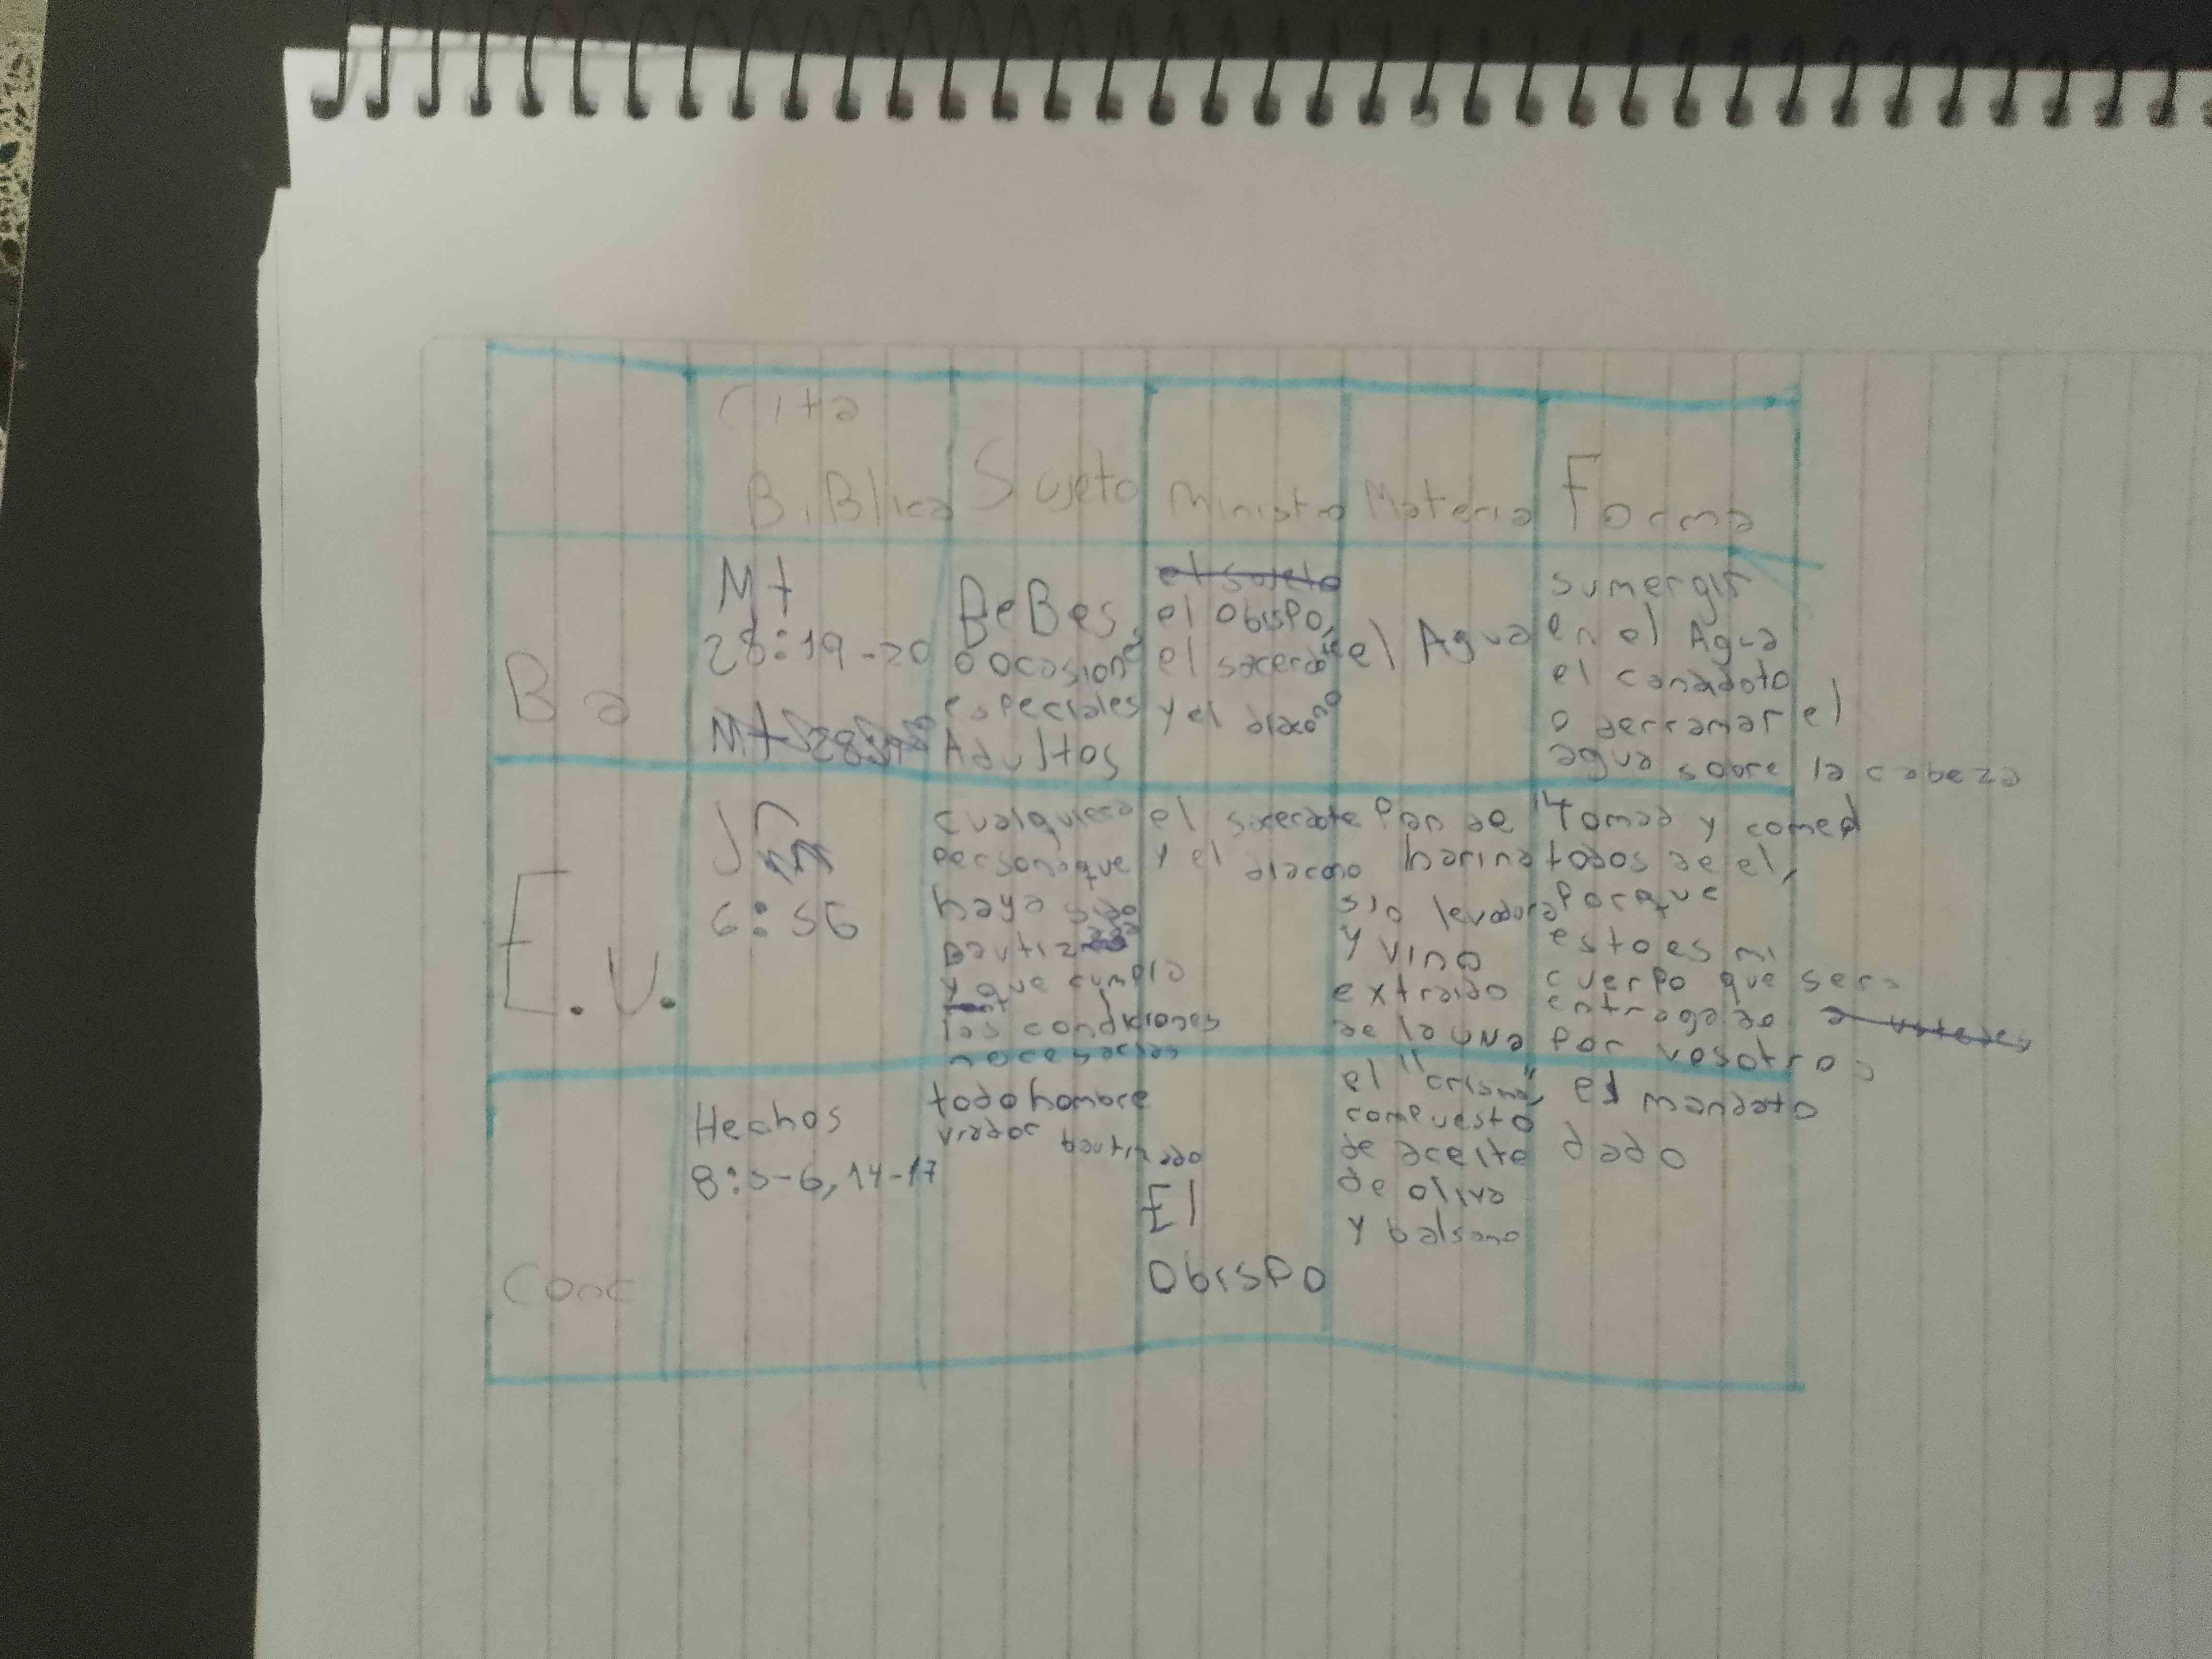 Cita
BiBlica
Sujeto
Ministro
Materia
Forma
Ba
Mt
28:19-20
BeBes
o ocasiones
especiales
Adultos
el sujeto
el obispo,
el sacerdote
y el diacono
el Agua
sumergir
en el Agua
el
o derramar el
agua sobre la cabeza
E.U.
Jn
6:56
cualquiera
persona que
haya sido
Bautizada
y que cumpla
las condiciones
necesarias
el sacerdote
y el diacono
Pan de
harina
sin levadura
y vino
extraido
de la uva
"Tomad y comed
todos de el,
Porque
esto es mi
cuerpo que sera
entregado a ustedes
Por vosotros
Conc
Hechos
8:5-6, 14-17
todo hombre
viador bautizado
El
Obispo
el "crisma"
compuesto
de aceite
de oliva
y balsamo
el mandato
dado